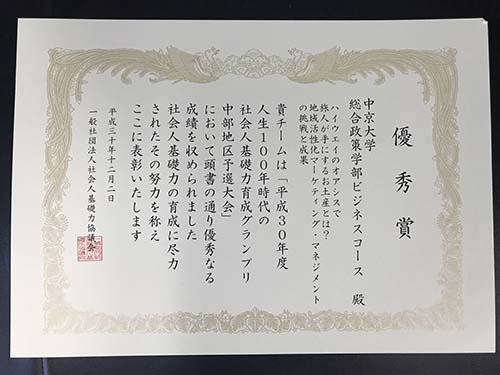 優秀賞
中京大学
総合政策学部ビジネスコース 殿
ハイウエイのオアシスで
旅人が手にするお土産とは?
地域活性化マーケティング・マネジメント
の挑戦と成果
貴チームは「平成30年度
人生100年時代の
社会人基礎力育成グランプリ
中部地区予選大会」
において頭書の通り優秀なる
成績を収められました
社会人基礎力の育成に尽力
されたその努力を称え
ここに表彰いたします
平成三十年十二月二日
一般社団法人社会人基礎力協議会